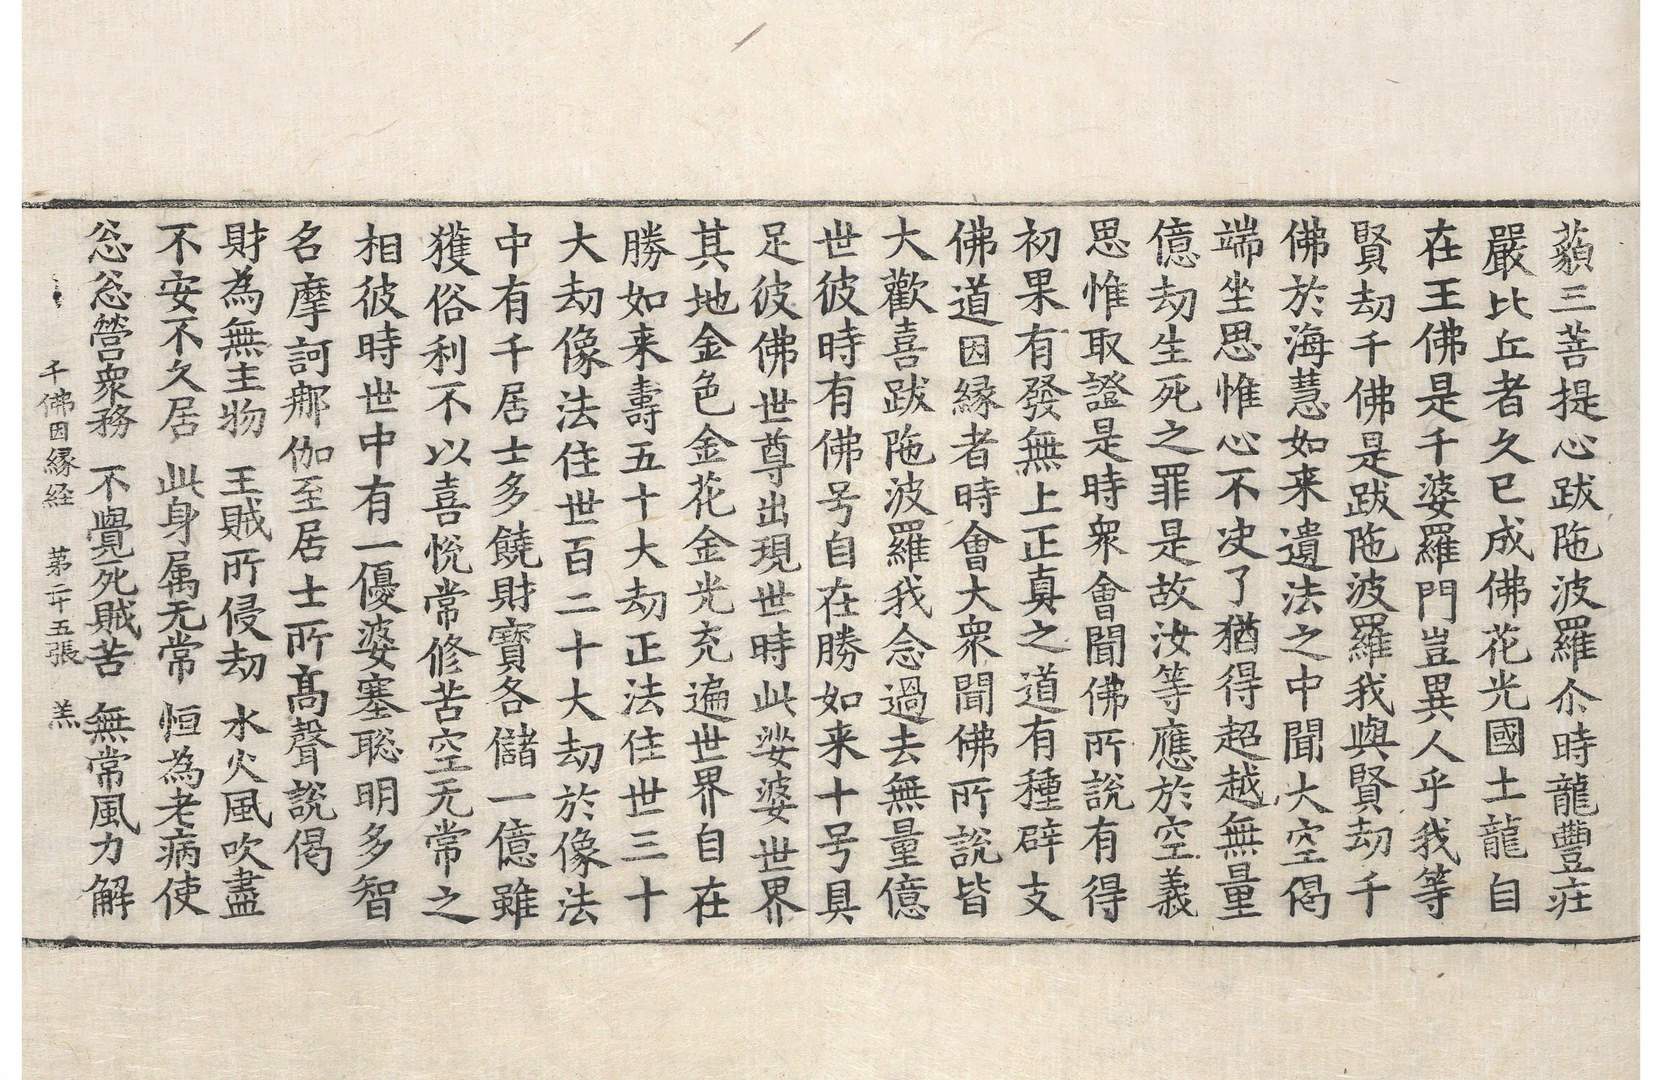 藐三菩提心跋陁波羅尒時龍豐疘
嚴比丘者久已成佛花光國土龍自
在王佛是千婆羅門豈異人乎我等
賢劫千佛是跋陁波羅我與賢劫千
佛於海慧如来遺法之中聞大空偈
端坐思惟心不决了猶得超越無量
億劫生死之罪是故汝等應於空義
思惟取證是時衆會聞佛所說有得
初果有發無上正真之道有種辟支
佛道因縁者時會大衆聞佛所說皆
大歡喜跋陁波羅我念過去無量億
世彼時有佛号自在勝如来十号具
足彼佛世尊出現世時此娑婆世界
其地金色金花金光充遍世界自在
勝如来壽五十大劫正法住世三十
大劫像法住世百二十大劫於像法
中有千居士多饒財寳各儲一億雖
獲俗利不以喜悅常修苦空无常之
相彼時世中有一優婆塞聡明多智
名摩訶那伽至居士所髙聲說偈
財為無主物 王賊所侵劫 水火風吹盡
不安不久居 此身属无常 恒為老病使
忩忩營衆務 不覺死賊苦 無常風力解
千佛因縁経 苐二十五張 羔